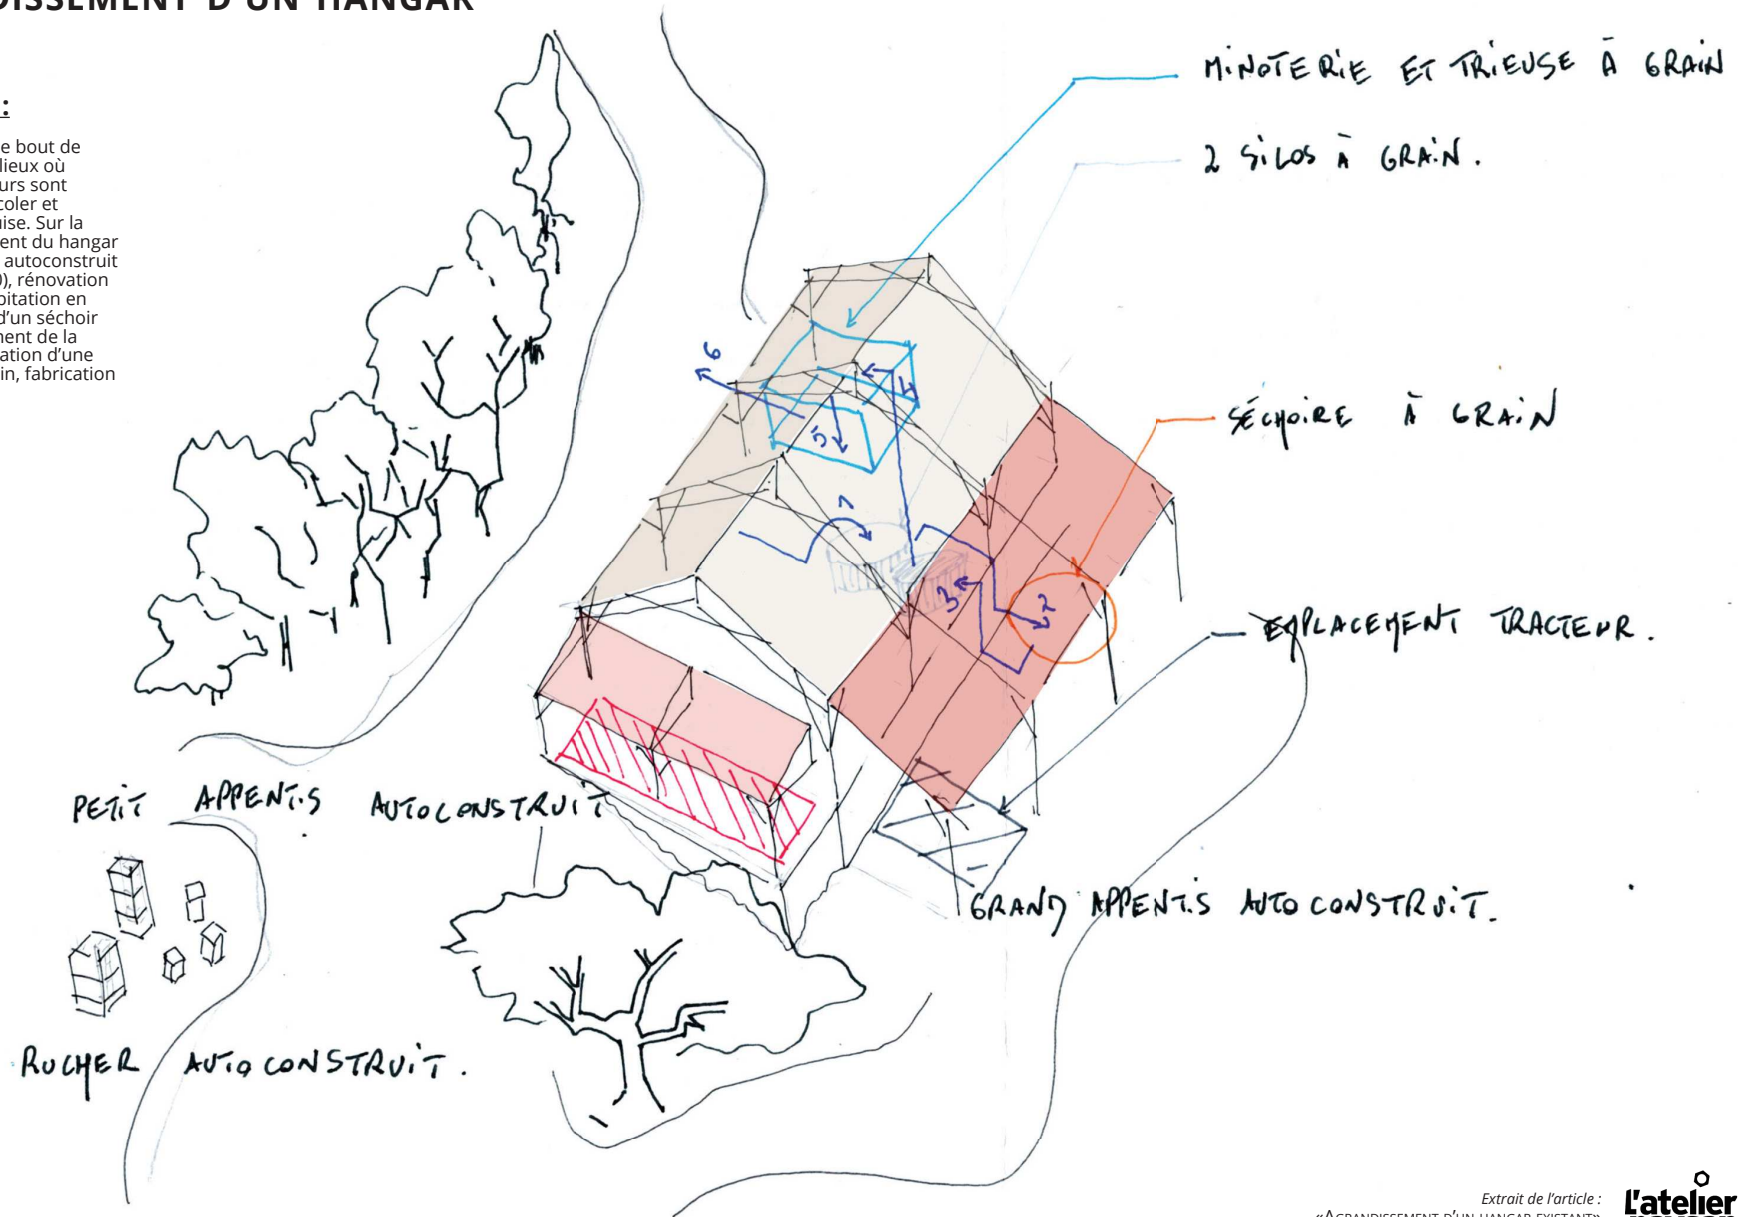 DISSEMENT D'UN HANGAR
:
e bout de
lieux où
urs sont
coler et
uise. Sur la
ent du hangar
autoconstruit
), rénovation
bitation en
d'un séchoir
ment de la
ation d'une
in, fabrication
MINOTERIE ET TRIEUSE À GRAIN
2 SILOS À GRAIN.
SÉCHOIRE À GRAIN
EMPLACEMENT TRACTEUR.
6
4
5
1
3
2
PETIT APPENTIS AUTOCONSTRUIT
GRAND APPENTIS AUTOCONSTRUIT.
RUCHER AUTOCONSTRUIT.
Extrait de l'article :
«AGRANDISSEMENT D'UN HANGAR EXISTANT»
L'atelier
paysan